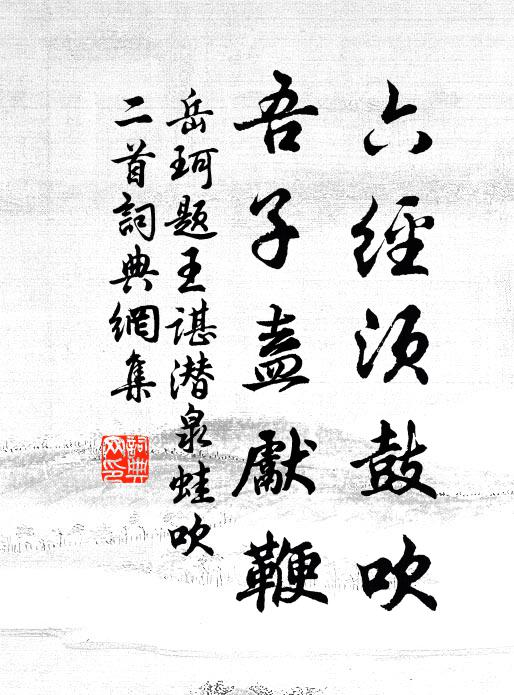 六經须鼓吹
吾子盍獻鞭
岳珂题王谌潜泉蛙吹
二首詞典網集
詞典网印